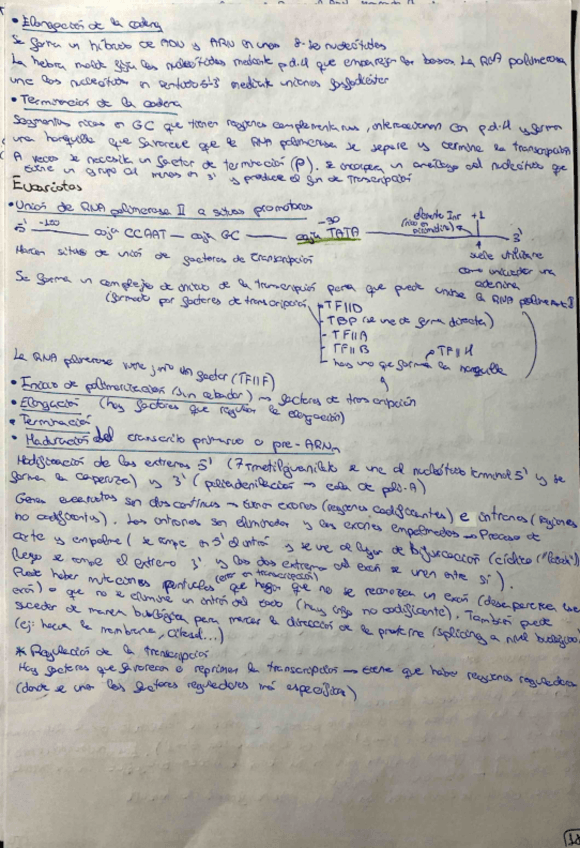 • Elongación de la cadena
Se forma un híbrido de ADN y ARN en unos 8-10 nucleótidos
La hebra molde fija los nucleótidos mediante p.d.H que emparejan las bases. La RNA polimerasa
une los nucleótidos en sentido 5'-3' mediante uniones fosfodiéster
• Terminación de la cadena
Segmentos ricos en GC que tienen regiones complementarias, interaccionan con p.d.H y forman
una horquilla que favorece que la RNA polimerasa se separe y termine la transcripción
A veces se necesita un factor de terminación (ρ). Se incorpora un análogo del nucleótido que
tiene un grupo al menos en 3' y produce el fin de transcripción
Eucariotas
• Unión de RNA polimerasa II a sitios promotores
5' -100 caja CCAAT — caja GC — caja TATA -30 elemento Inr (rico en pirimidina) +1 3'
Marcan sitios de unión de factores de transcripción
suele utilizarse
como iniciador una
adenina
Se forma un complejo de inicio de la transcripción para que pueda unirse la RNA polimerasa II
(formado por factores de transcripción)
- TFIID
- TBP (se une de forma directa)
- TFIIA
- TFIIB
- hay uno que forma la horquilla TFIIH
La RNA polimerasa viene junto un factor (TFIIF)
• Inicio de polimerización (sin cebador) → factores de transcripción
• Elongación (hay factores que regulan la elongación)
• Terminación
• Maduración del transcrito primario o pre-ARNm
Modificación de los extremos 5' (7 metilguanilato se une al nucleótido terminal 5' y se
forma la caperuza) y 3' (poliadenilación → cola de poli-A)
Genes eucariotas son discontinuos → tienen exones (regiones codificantes) e intrones (regiones
no codificantes). Los intrones son eliminados y los exones empalmados → Proceso de
corte y empalme (se rompe en 5' el intrón y se une al lugar de bifurcación (cíclico ("lazo"))
luego se rompe el extremo 3' y los dos extremos del exón se unen entre sí).
Puede haber mutaciones puntuales (error en transcripción) que hagan que no se reconozca un exón (desaparece ese
exón) o que no se elimine un intrón del todo (hay trozo no codificante). También puede
suceder de manera biológica para marcar la dirección de la proteína (splicing a nivel biológico)
(ej: hacia la membrana, citosol...)
* Regulación de la transcripción
Hay factores que favorecen o reprimen la transcripción → tiene que haber regiones reguladoras
(donde se unen los factores reguladores más específicos)